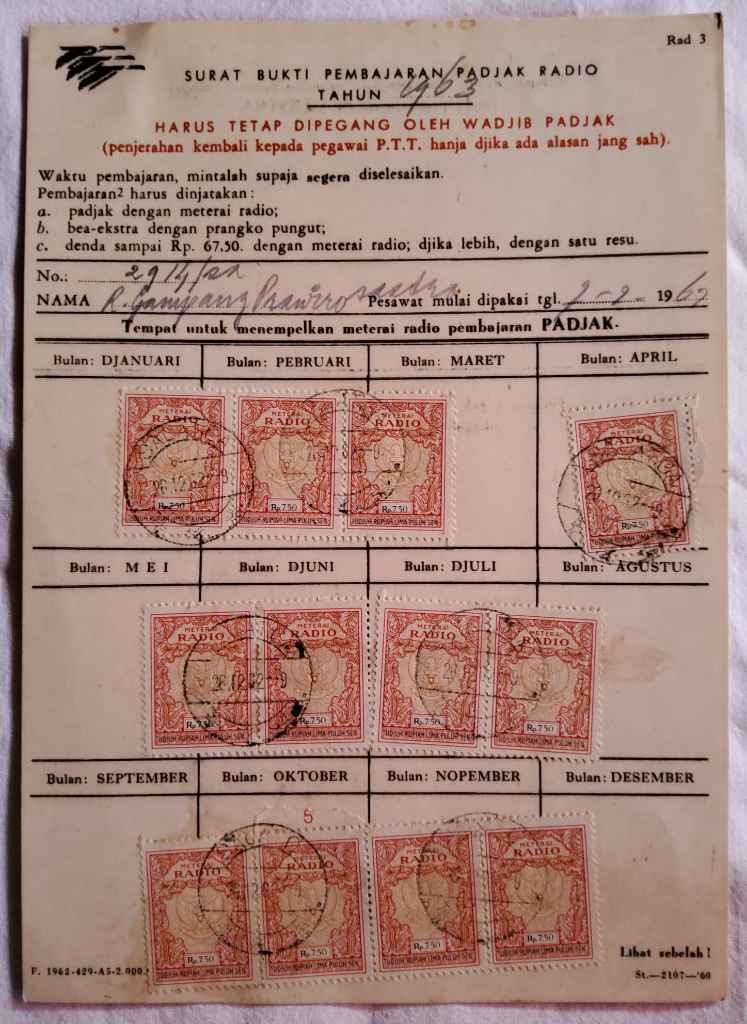 Rad 3
SURAT BUKTI PEMBAJARAN PADJAK RADIO
TAHUN 1963
HARUS TETAP DIPEGANG OLEH WADJIB PADJAK
(penjerahan kembali kepada pegawai P.T.T. hanja djika ada alasan jang sah).
Waktu pembajaran, mintalah supaja segera diselesaikan.
Pembajaran² harus dinjatakan :
a. padjak dengan meterai radio;
b. bea-ekstra dengan prangko pungut;
c. denda sampai Rp. 67,50. dengan meterai radio; djika lebih, dengan satu resu.
No.:
NAMA R. Gampang Pesawat mulai dipakai tgl. 196
Tempat untuk menempelkan meterai radio pembajaran PADJAK.
Bulan: DJANUARI Bulan: PEBRUARI Bulan: MARET Bulan: APRIL
METERAI RADIO METERAI RADIO METERAI RADIO METERAI RADIO
28.12.62
Rp.7.50 Rp.7.50 Rp.7.50 Rp.7.50
TUDJUH RUPIAH LIMA PULUH SEN TUDJUH RUPIAH LIMA PULUH SEN TUDJUH RUPIAH LIMA PULUH SEN TUDJUH RUPIAH LIMA PULUH SEN
Bulan: MEI Bulan: DJUNI Bulan: DJULI Bulan: AGUSTUS
METERAI RADIO METERAI RADIO METERAI RADIO METERAI RADIO
Rp.7.50 Rp.7.50 Rp.7.50 Rp.7.50
TUDJUH RUPIAH LIMA PULUH SEN TUDJUH RUPIAH LIMA PULUH SEN TUDJUH RUPIAH LIMA PULUH SEN TUDJUH RUPIAH LIMA PULUH SEN
Bulan: SEPTEMBER Bulan: OKTOBER Bulan: NOPEMBER Bulan: DESEMBER
5
METERAI RADIO METERAI RADIO METERAI RADIO METERAI RADIO
Rp.7.50 Rp.7.50 Rp.7.50 Rp.7.50
TUDJUH RUPIAH LIMA PULUH SEN TUDJUH RUPIAH LIMA PULUH SEN TUDJUH RUPIAH LIMA PULUH SEN TUDJUH RUPIAH LIMA PULUH SEN
Lihat sebelah !
F. 1962-429-A5-2.000. St.—2107-'60